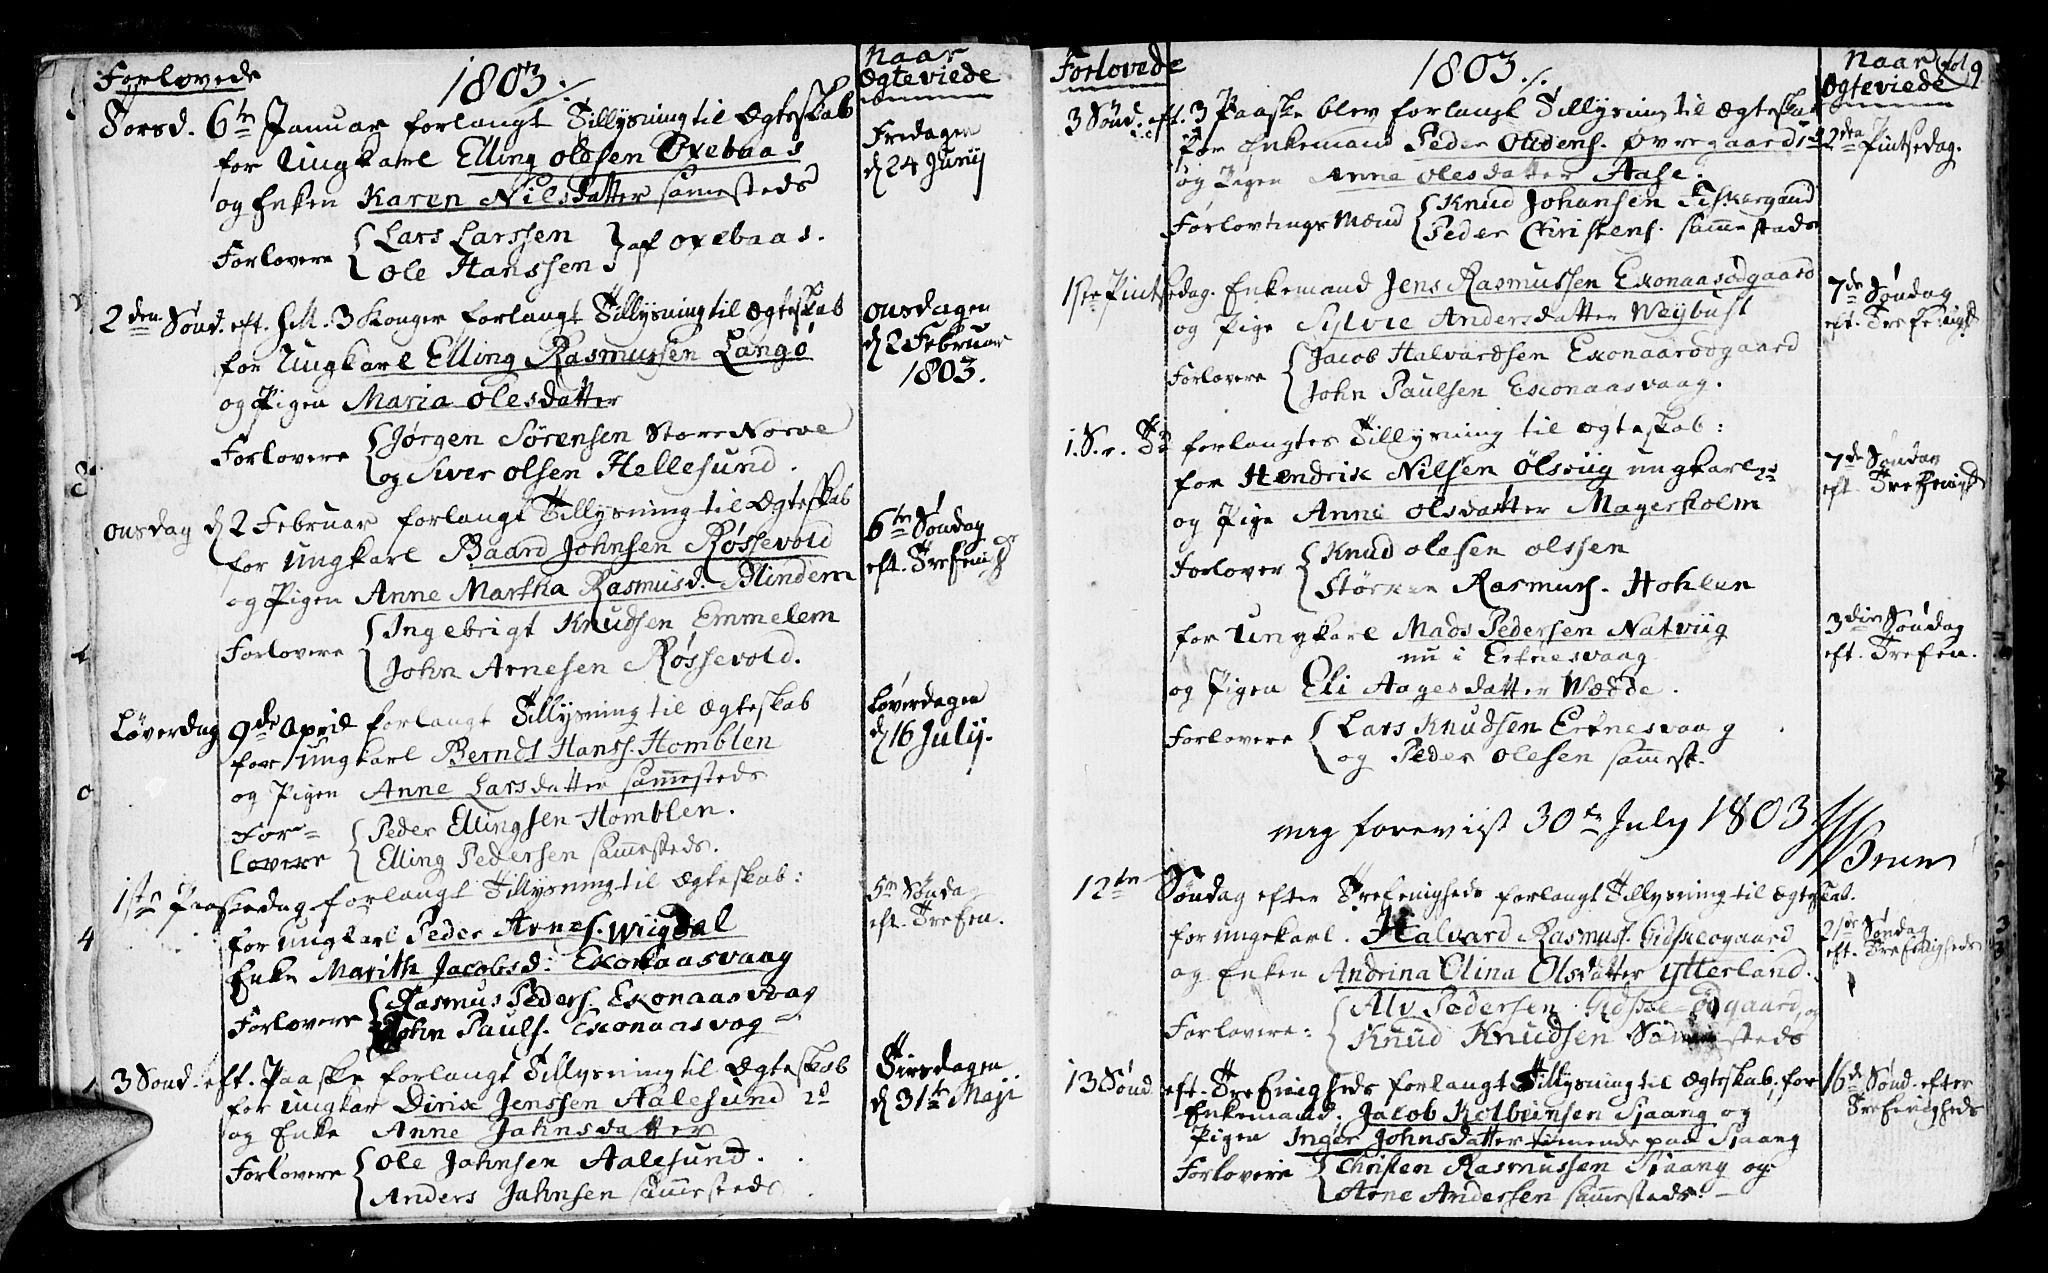 Forlovede
1803.
Naar
Ægteviede
Torsd. 6te Januar forlangt Tillysning til Ægteskab
for Ungkarl Elling Oldsen Oxebaas
og Enken Karen Nilsdatter sammesteds
Forlovere Lars Larssen
Ole Hanssen af Oxebaas.
Fredagen
d 24 Junij
2den Sønd. eft. H.M. 3 Konger forlangt Tillysning til Ægteskab
for Ungkarl Elling Rasmussen Langø
og Pigen Maria Olesdatter
Forlovere Jørgen Sørensen Store Norve
og Siver Olsen Hellesund.
Onsdagen
d 2 Februar
1803.
Onsdag d 2 Februar forlangt Tillysning til Ægteskab
for Ungkarl Baard Johnsen Røssevold
og Pigen Anne Martha Rasmusd. Blindem
Forlovere Ingebrigt Knudsen Emmelem
John Arnesen Røssevold.
6te Søndag
eft. Trefenigh
Løverdag 9de April forlangt Tillysning til Ægteskab
for Ungkarl Berndt Hanss. Homblen
og Pigen Anne Larsdatter sammesteds
For-
lovere
Peder Ellingsen Homblen.
Elling Pedersen sammesteds.
Løverdagen
d 16 Julij.
1ste Paaskedag forlangt Tillysning til Ægteskab:
for Ungkarl Peder Arnes. Wiigdal
Enke Marith Jacobsd: Exonaasvaag
Forlovere Rasmus Peders. Exonaasvaag
John Pauls. Exonaasvog
5te Søndag
eft. Trefen.
3 Sønd. eft. Paaske forlangt Tillysning til Ægteskab
for Ungkar Dirix Jenssen Aalesund
og Enke Anne Jahnsdatter
Forlovere Ole Jahnsen Aalesund.
Anders Jahnsen sammesteds
Tirsdagen
d 31te Maji
Forlovede
1803.
Naar
Ægteviede
fol 9
3 Sønd. eft. Paaske blev forlangt Tillysning til Ægteskab
for Enkemand Peder Oldens. Øvregaard
og Pigen Anne Olesdatter Aase.
Forlovtings Mænd Knud Johansen Fiskergaard
Peder Christens. sammesteds
2den Pintsedag.
1ste Pintsedag. Enkemand Jens Rasmussen Exonaasødgaard
og Pige Sylvie Andersdatter Weÿbust
Forlovere Jacob Halvardsen Exonaasødgaard
John Paulsen Exonaasvaag.
7de Søndag
eft. Trefenigh
1. S. e. T forlangtes Tillysning til Ægteskab:
for Hendrix Nilsen Ølsviig ungkarl
og Pige Anne Olsdatter Magerholm
Forlover Knud Olesen Olssen
Størker Rasmus. Hohlen
7de Søndag
eft. Trefenigh
for Ungkarl Mads Pedersen Natviig
nu i Ertnesvaag
og Pigen Eli Aagesdatter Wædde.
Forlovere Lars Knudsen Ertnesvaag
og Peder Olesen sammest.
3die Søndag
eft. Trefen.
mig forevist 30te July 1803
Bruun
12te Søndag efter Trefenigheds forlangt Tillysning til Ægteskab.
for ungekarl. Halvard Rasmus. Gidskeogaard
og Enken Andrina Olina Olsdatter Ytterland.
Forlovere: Alv Pedersen Gidske Ødgaard, og
Knud Knudsen Sammesteds
Søndag
eft. Trefenigheds
13 Sønd. eft. Trefenigheds forlangt Tillysning til Ægteskab, for
Enkemand. Jacob Kolbeinsen Sjaang og
Pigen Inger Johnsdatter tienende paa Sjaang
Forlovere Christen Rasmussen Sjaang og
Arne Andersen sammesteds.
16de Sønd. efter
Trefenigheds